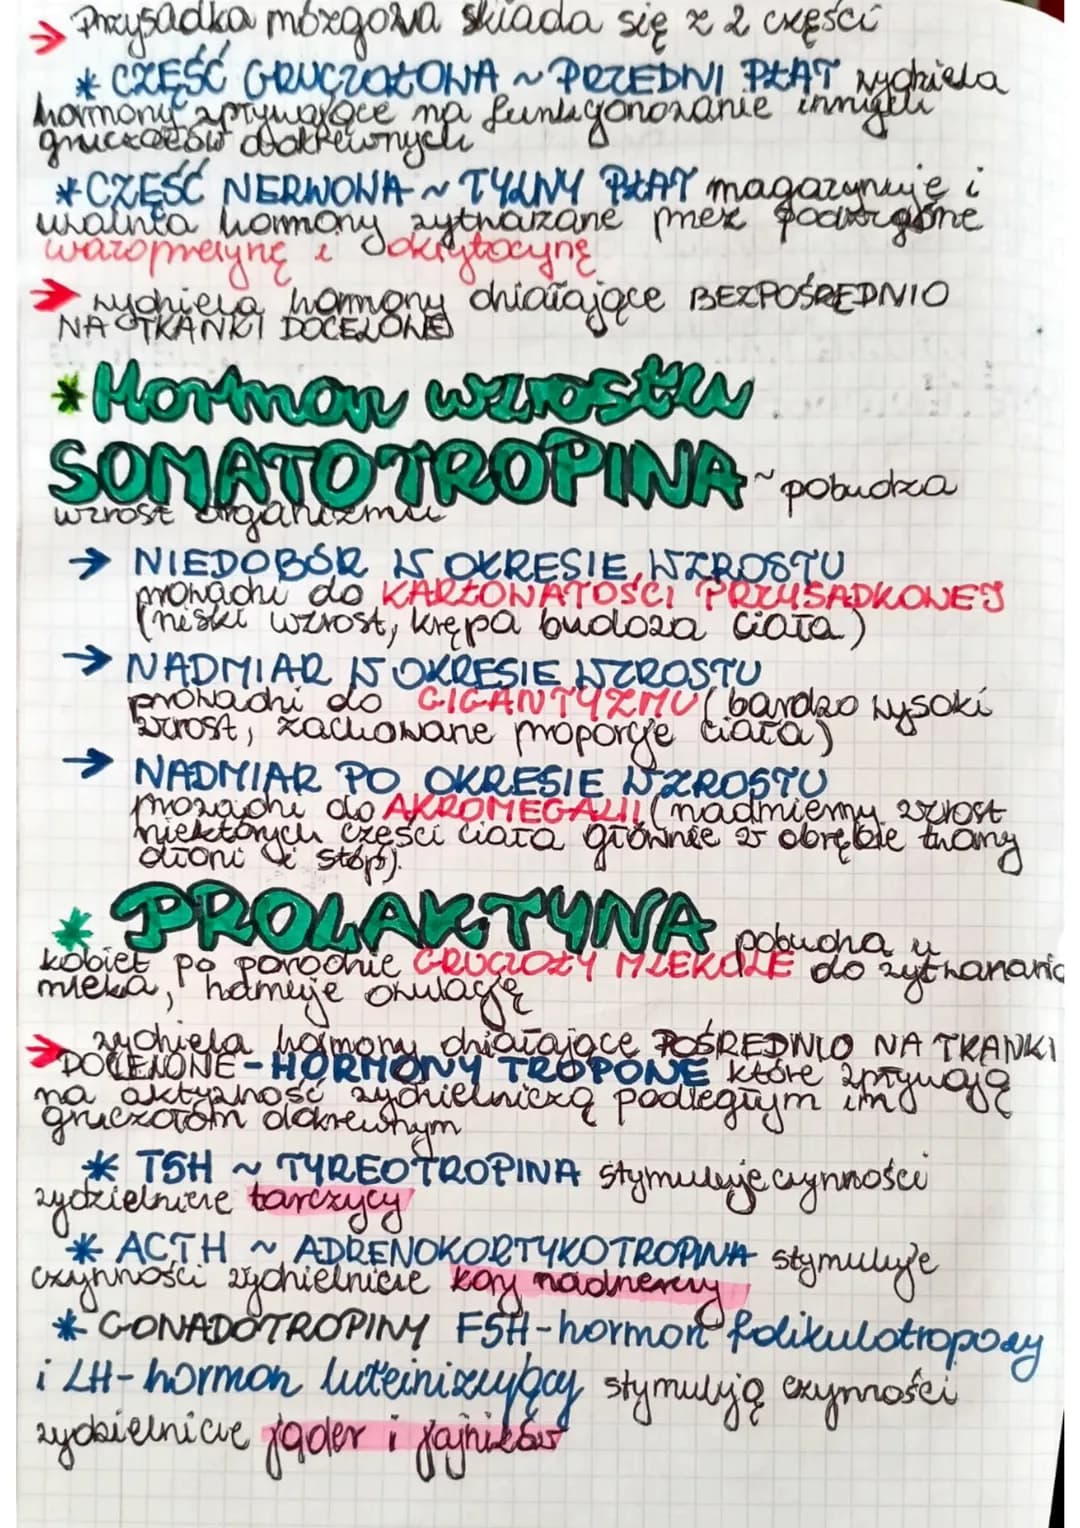 → Przysadka mózgowa składa się z 2 części
* CZĘŚĆ GRUCZOŁOWA ~ PRZEDNI PŁAT wydziela
hormony wpływające na funkcjonowanie innych
gruczołów dokrewnych
* CZĘŚĆ NERWOWA ~ TYLNY PŁAT magazynuje i
uwalnia hormony wytwarzane przez podwzgórze
wazopresynę i oksytocynę
→ wydziela hormony działające BEZPOŚREDNIO
NA TKANKI DOCELOWE
* Hormon wzrostu
SOMATOTROPINA ~ pobudza
wzrost organizmu
→ NIEDOBÓR W OKRESIE WZROSTU
prowadzi do KARŁOWATOŚCI PRZYSADKOWEJ
(niski wzrost, krępa budowa ciała)
→ NADMIAR W OKRESIE WZROSTU
prowadzi do GIGANTYZMU (bardzo wysoki
wzrost, zachowane proporcje ciała)
→ NADMIAR PO OKRESIE WZROSTU
prowadzi do AKROMEGALII (nadmierny wzrost
niektórych części ciała głównie w obrębie twarzy
dłoni i stóp).
* PROLAKTYNA pobudza u
kobiet po porodzie GRUCZOŁY MLEKOWE do wytwarzania
mleka, hamuje owulację
→ wydziela hormony działające POŚREDNIO NA TKANKI
DOCELOWE - HORMONY TROPOWE które wpływają
na aktywność wydzielniczą podległym im
gruczołom dokrewnym
* TSH ~ TYREOTROPINA stymuluje czynności
wydzielnicze tarczycy
* ACTH ~ ADRENOKORTYKOTROPINA stymuluje
czynności wydzielnicze kory nadnerczy
* GONADOTROPINY FSH - hormon folikulotropowy
i LH - hormon luteinizujący stymulują czynności
wydzielnicze jąder i jajników